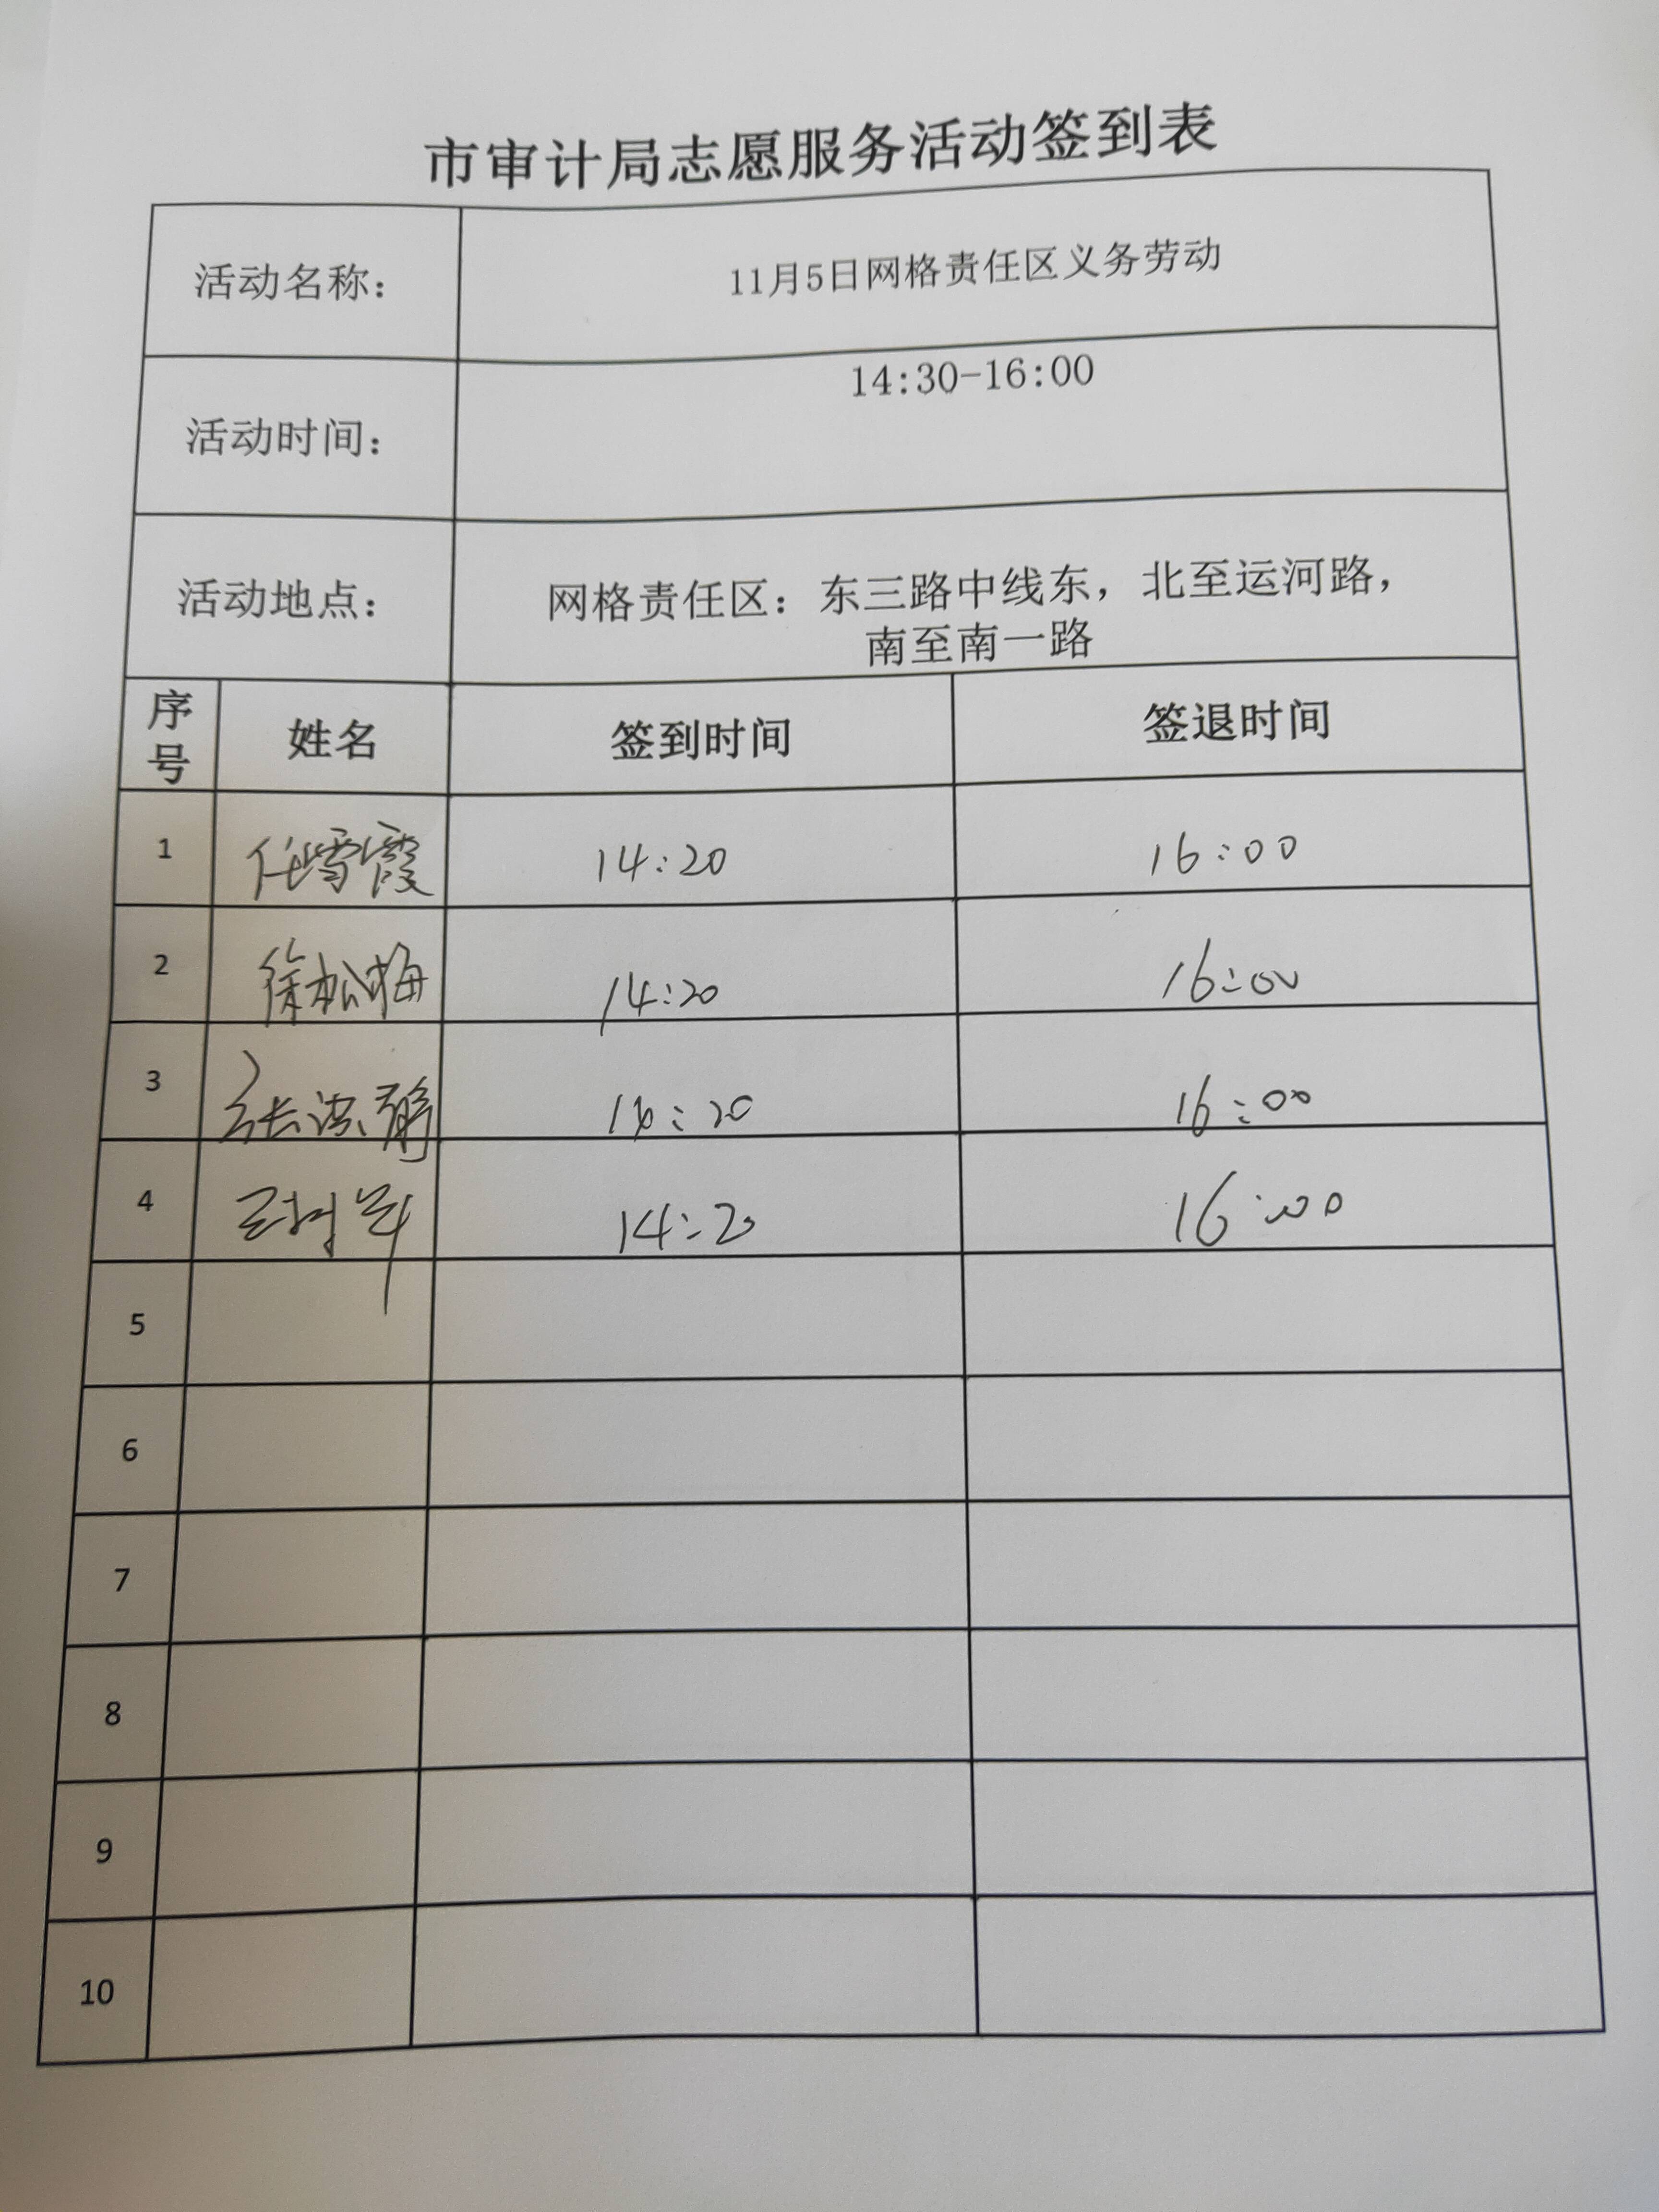 市审计局志愿服务活动签到表
活动名称： 11月5日网格责任区义务劳动
活动时间： 14:30-16:00
活动地点： 网格责任区：东三路中线东，北至运河路，
南至南一路
序号 姓名 签到时间 签退时间
1 任雪霞 14:20 16:00
2 徐松梅 14:20 16:00
3 张 :20 16:00
4 王 14:20 16:00
5
6
7
8
9
10